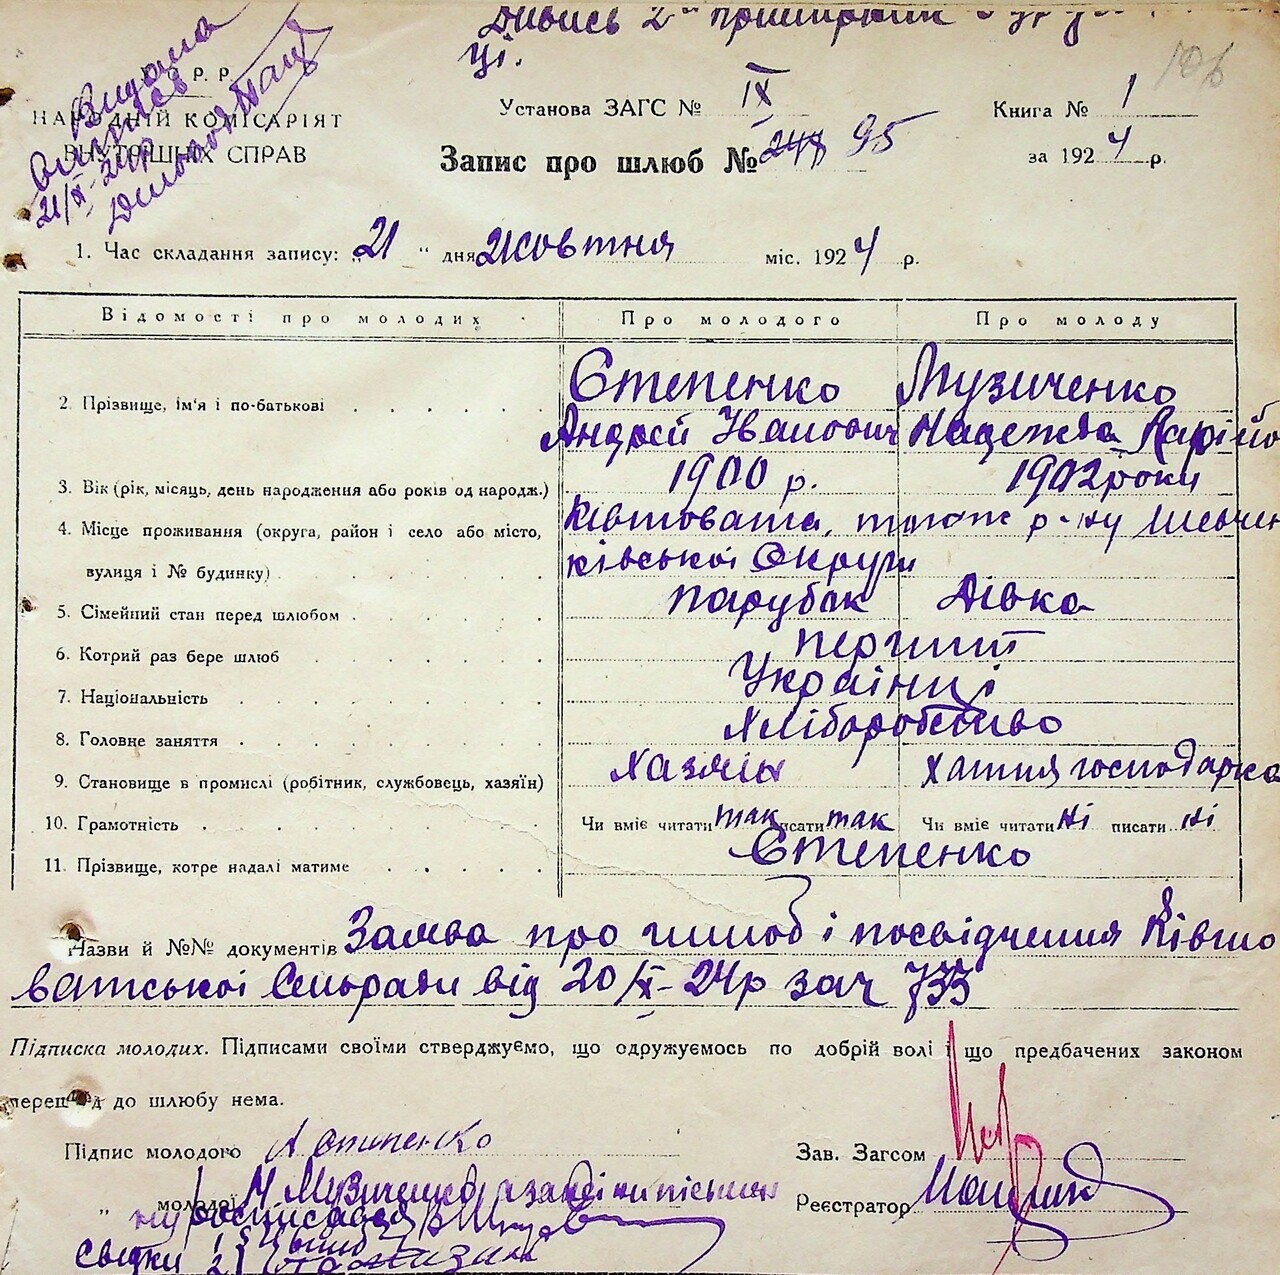 Дивись 2й примірник
ці.
Р. Р.
Видана
витяг
21/X-24р
НАРОДНІЙ КОМІСАРІЯТ
ВНУТРІШНИХ СПРАВ
Установа ЗАГС № IX
Книга № 1
Запис про шлюб № 248 95
за 1924 р.
1. Час складання запису: „21“ дня 21 Жовтня міс. 1924 р.
Відомості про молодих
Про молодого
Про молоду
2. Прізвище, ім'я і по-батькові
Степенко Музиченко
Андрій Іванович Надежда
3. Вік (рік, місяць, день народження або років од народж.) 1900 р. 1902 роки
4. Місце проживання (округа, район і село або місто, Ківшовата, того ж р-ну Шевчен
вулиця і № будинку) ківської Округи
5. Сімейний стан перед шлюбом парубак Дівка
6. Котрий раз бере шлюб перший
7. Національність Українці
8. Головне заняття Хліборобство
9. Становище в промислі (робітник, службовець, хазяїн) Хазяїн хатня господарка
10. Грамотність Чи вміє читати так писати так Чи вміє читати ні писати ні
11. Прізвище, котре надалі матиме Степенко
Назви й №№ документів Заява про шлюб і посвідчення Ківшо
ватської Сільради від 20/X-24р зач 733
Підписка молодих. Підписами своїми стверджуємо, що одружуємось по добрій волі і що предбачених законом
перешкод до шлюбу нема.
Підпис молодого А Степенко
Зав. Загсом
„ молодої Н Музиченко, а за неї неписьмен
ну росписався
Реєстратор
Свідки 1)
2)